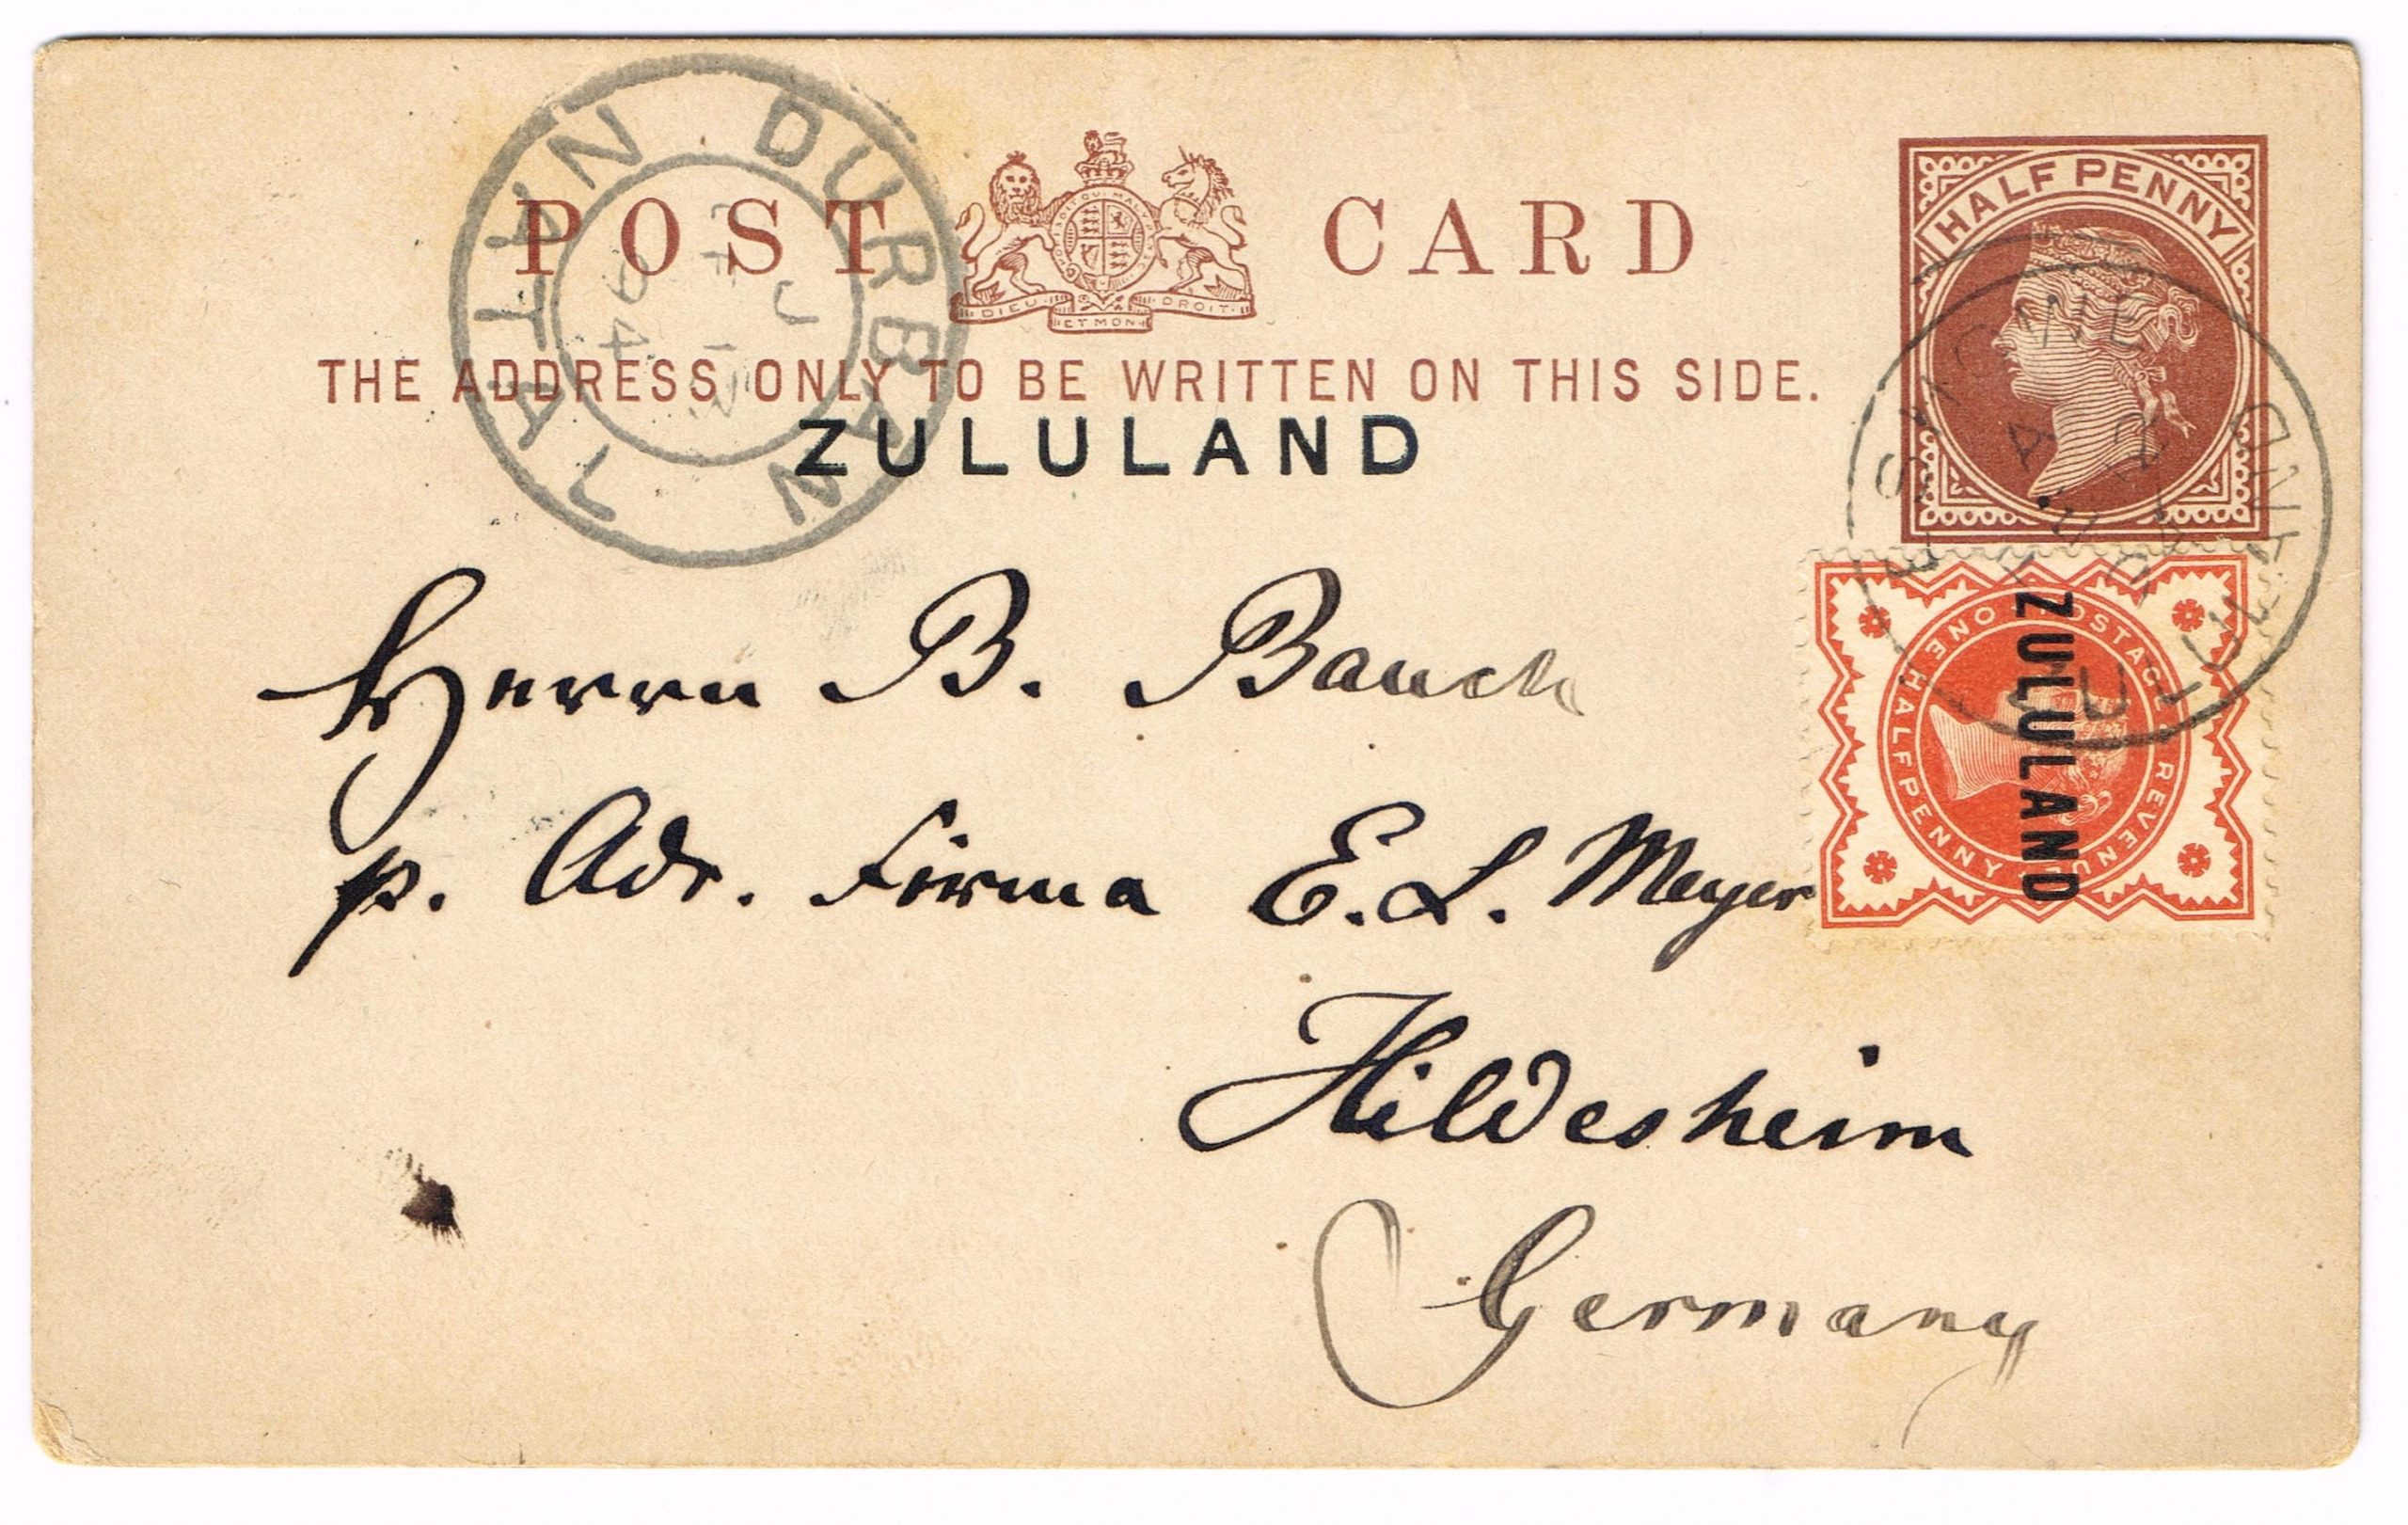 POST CARD
DIEU ET MON DROIT
HALF PENNY
THE ADDRESS ONLY TO BE WRITTEN ON THIS SIDE.
ZULULAND
DURBAN
NATAL
94
ESHOWE
ZULULAND
POSTAGE & REVENUE
ONE HALFPENNY
ZULULAND
Herrn B. Bauch
p. Adr. Firma E. L. Meyer
Hildesheim
Germany